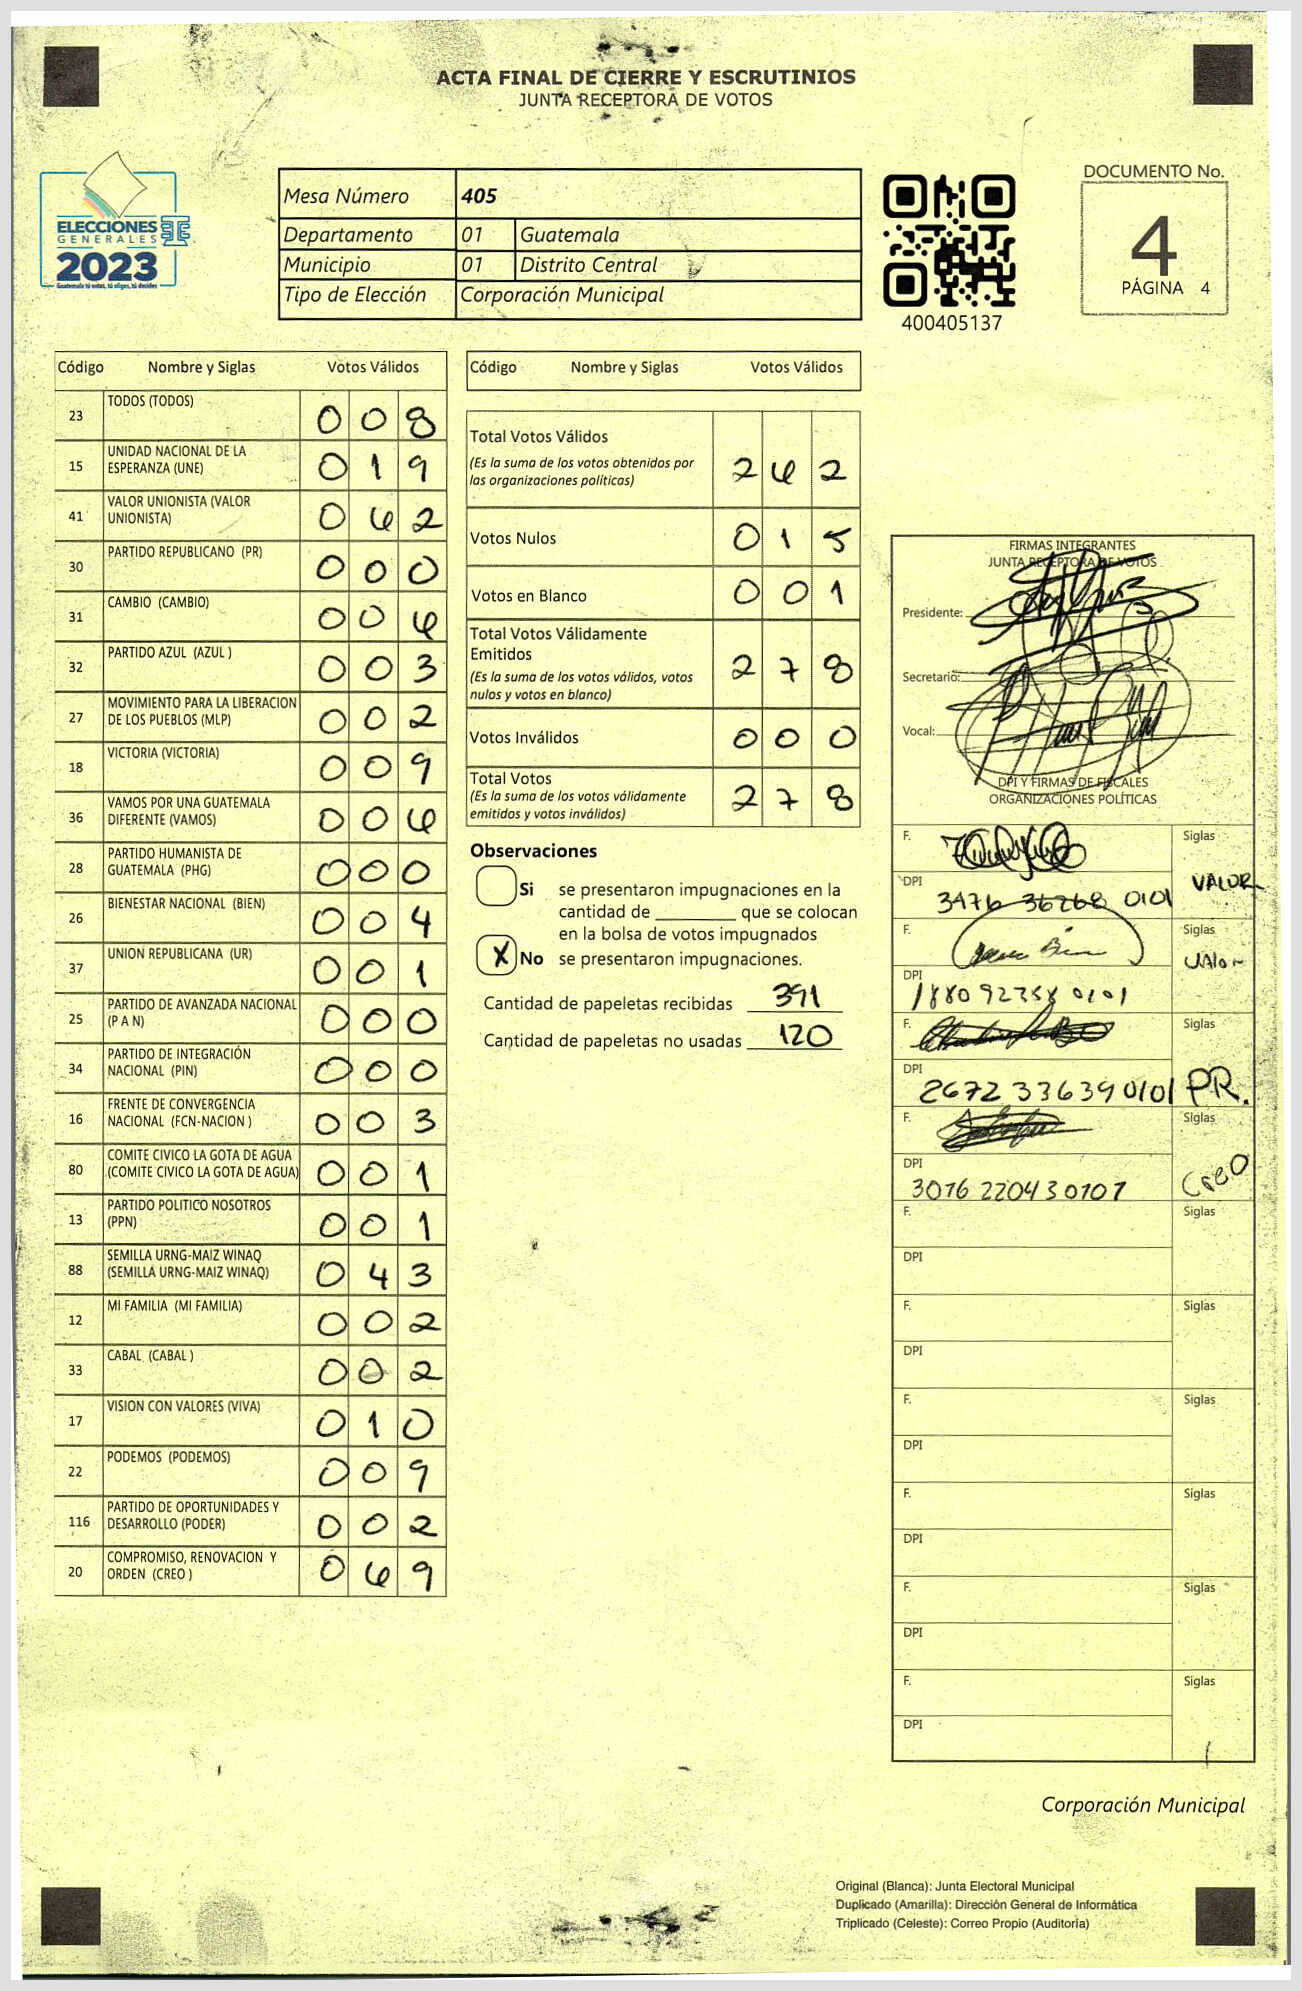 ACTA FINAL DE CIERRE Y ESCRUTINIOS
JUNTA RECEPTORA DE VOTOS
ELECCIONES
GENERALES
2023
Guatemala tú votas, tú eliges, tú decides
Mesa Número 405
Departamento 01 Guatemala
Municipio 01 Distrito Central
Tipo de Elección Corporación Municipal
400405137
DOCUMENTO No.
4
PÁGINA 4
Código Nombre y Siglas Votos Válidos
23 TODOS (TODOS) 0 0 8
15 UNIDAD NACIONAL DE LA
ESPERANZA (UNE) 0 1 9
41 VALOR UNIONISTA (VALOR
UNIONISTA) 0 6 2
30 PARTIDO REPUBLICANO (PR) 0 0 0
31 CAMBIO (CAMBIO) 0 0 6
32 PARTIDO AZUL (AZUL ) 0 0 3
27 MOVIMIENTO PARA LA LIBERACION
DE LOS PUEBLOS (MLP) 0 0 2
18 VICTORIA (VICTORIA) 0 0 9
36 VAMOS POR UNA GUATEMALA
DIFERENTE (VAMOS) 0 0 6
28 PARTIDO HUMANISTA DE
GUATEMALA (PHG) 0 0 0
26 BIENESTAR NACIONAL (BIEN) 0 0 4
37 UNION REPUBLICANA (UR) 0 0 1
25 PARTIDO DE AVANZADA NACIONAL
(P A N) 0 0 0
34 PARTIDO DE INTEGRACIÓN
NACIONAL (PIN) 0 0 0
16 FRENTE DE CONVERGENCIA
NACIONAL (FCN-NACION ) 0 0 3
80 COMITE CIVICO LA GOTA DE AGUA
(COMITE CIVICO LA GOTA DE AGUA) 0 0 1
13 PARTIDO POLITICO NOSOTROS
(PPN) 0 0 1
88 SEMILLA URNG-MAIZ WINAQ
(SEMILLA URNG-MAIZ WINAQ) 0 4 3
12 MI FAMILIA (MI FAMILIA) 0 0 2
33 CABAL (CABAL ) 0 0 2
17 VISION CON VALORES (VIVA) 0 1 0
22 PODEMOS (PODEMOS) 0 0 9
116 PARTIDO DE OPORTUNIDADES Y
DESARROLLO (PODER) 0 0 2
20 COMPROMISO, RENOVACION Y
ORDEN (CREO ) 0 6 9
Código Nombre y Siglas Votos Válidos
Total Votos Válidos
(Es la suma de los votos obtenidos por
las organizaciones políticas) 2 6 2
Votos Nulos 0 1 5
Votos en Blanco 0 0 1
Total Votos Válidamente
Emitidos
(Es la suma de los votos válidos, votos
nulos y votos en blanco) 2 7 8
Votos Inválidos 0 0 0
Total Votos
(Es la suma de los votos válidamente
emitidos y votos inválidos) 2 7 8
Observaciones
Si se presentaron impugnaciones en la
cantidad de ________ que se colocan
en la bolsa de votos impugnados
X No se presentaron impugnaciones.
Cantidad de papeletas recibidas 391
Cantidad de papeletas no usadas 120
FIRMAS INTEGRANTES
JUNTA RECEPTORA DE VOTOS
Presidente:
Secretario:
Vocal:
DPI Y FIRMAS DE FISCALES
ORGANIZACIONES POLÍTICAS
F. Siglas
DPI 3476 36268 0101 VALOR
F. Siglas
DPI 1880 92758 0101 VALOR
F. Siglas
DPI 2672 33639 0101 PR.
F. Siglas
DPI 3016 22043 0101 CreO
F. Siglas
DPI
F. Siglas
DPI
F. Siglas
DPI
F. Siglas
DPI
F. Siglas
DPI
F. Siglas
DPI
Corporación Municipal
Original (Blanca): Junta Electoral Municipal
Duplicado (Amarilla): Dirección General de Informática
Triplicado (Celeste): Correo Propio (Auditoría)